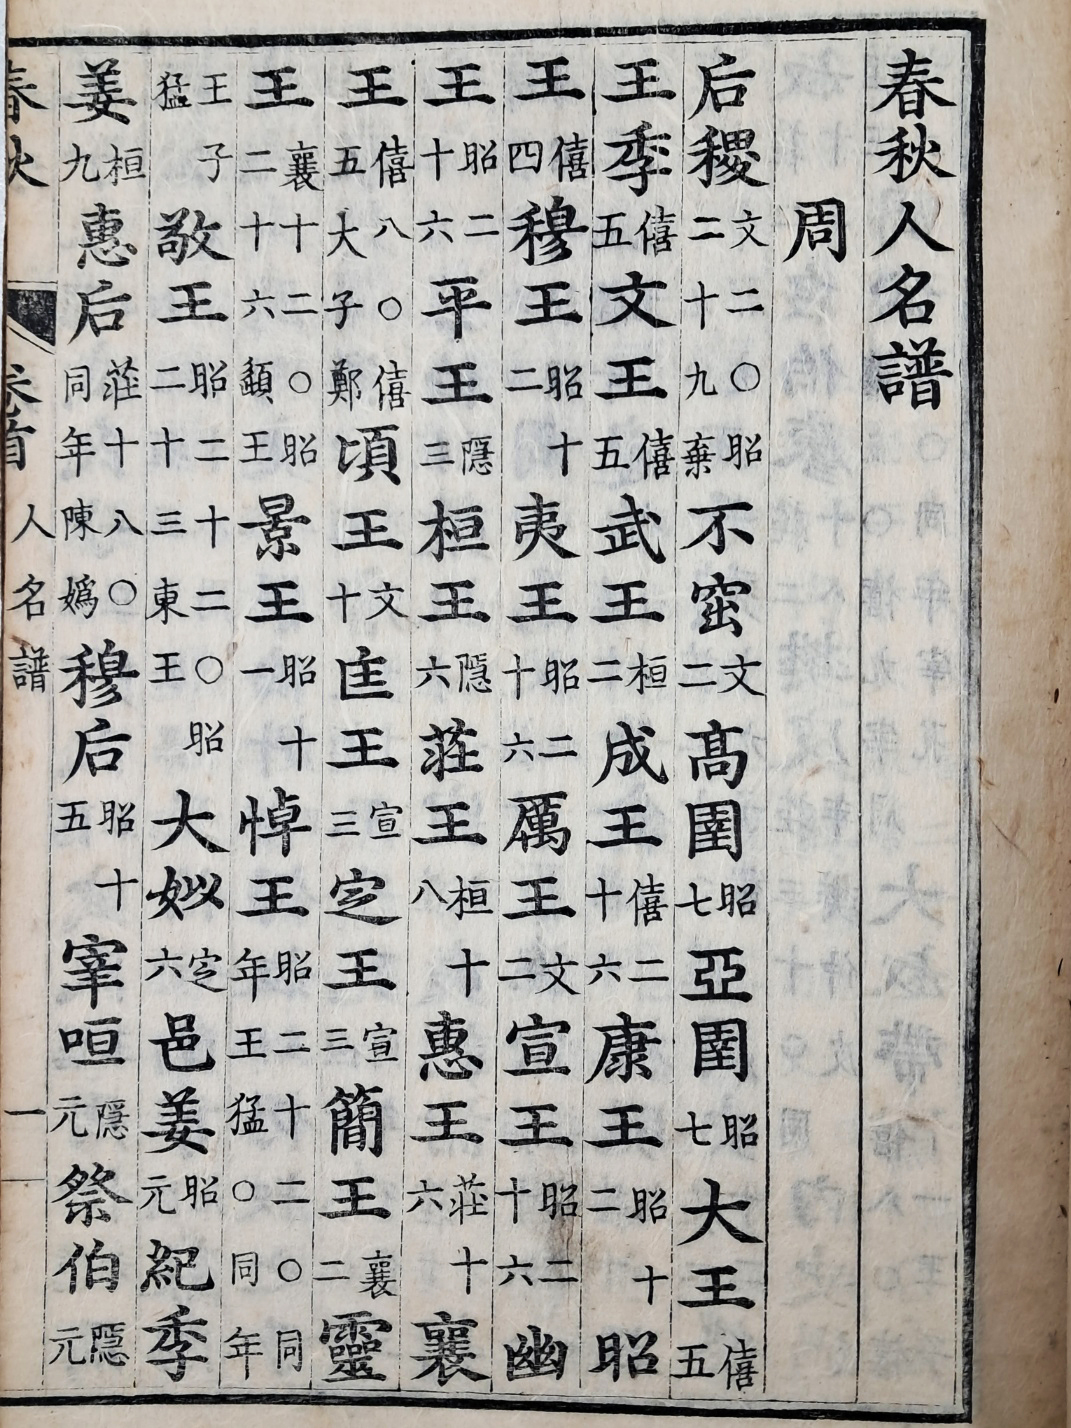 春秋人名譜
周
后稷文二〇昭二十九棄不窋文二高圉昭七亞圉昭七大王僖五
王季僖五文王僖五武王桓二成王僖二十六康王昭十二昭
王僖四穆王昭十二夷王昭二十六厲王文二宣王昭二十六幽
王昭二十六平王隱三桓王隱六莊王桓十八惠王莊十六襄
王僖八〇僖五大子鄭頃王文十匡王宣三㝎王宣三簡王襄二靈
王襄十二〇昭二十六頿王景王昭十一悼王昭二十二〇同年王猛〇同年
王子猛敬王昭二十二〇昭二十三東王大姒㝎六邑姜昭元紀季
姜桓九惠后莊十八〇同年陳媯穆后昭十五宰咺隱元祭伯隱元
春秋 卷首 人名譜 一